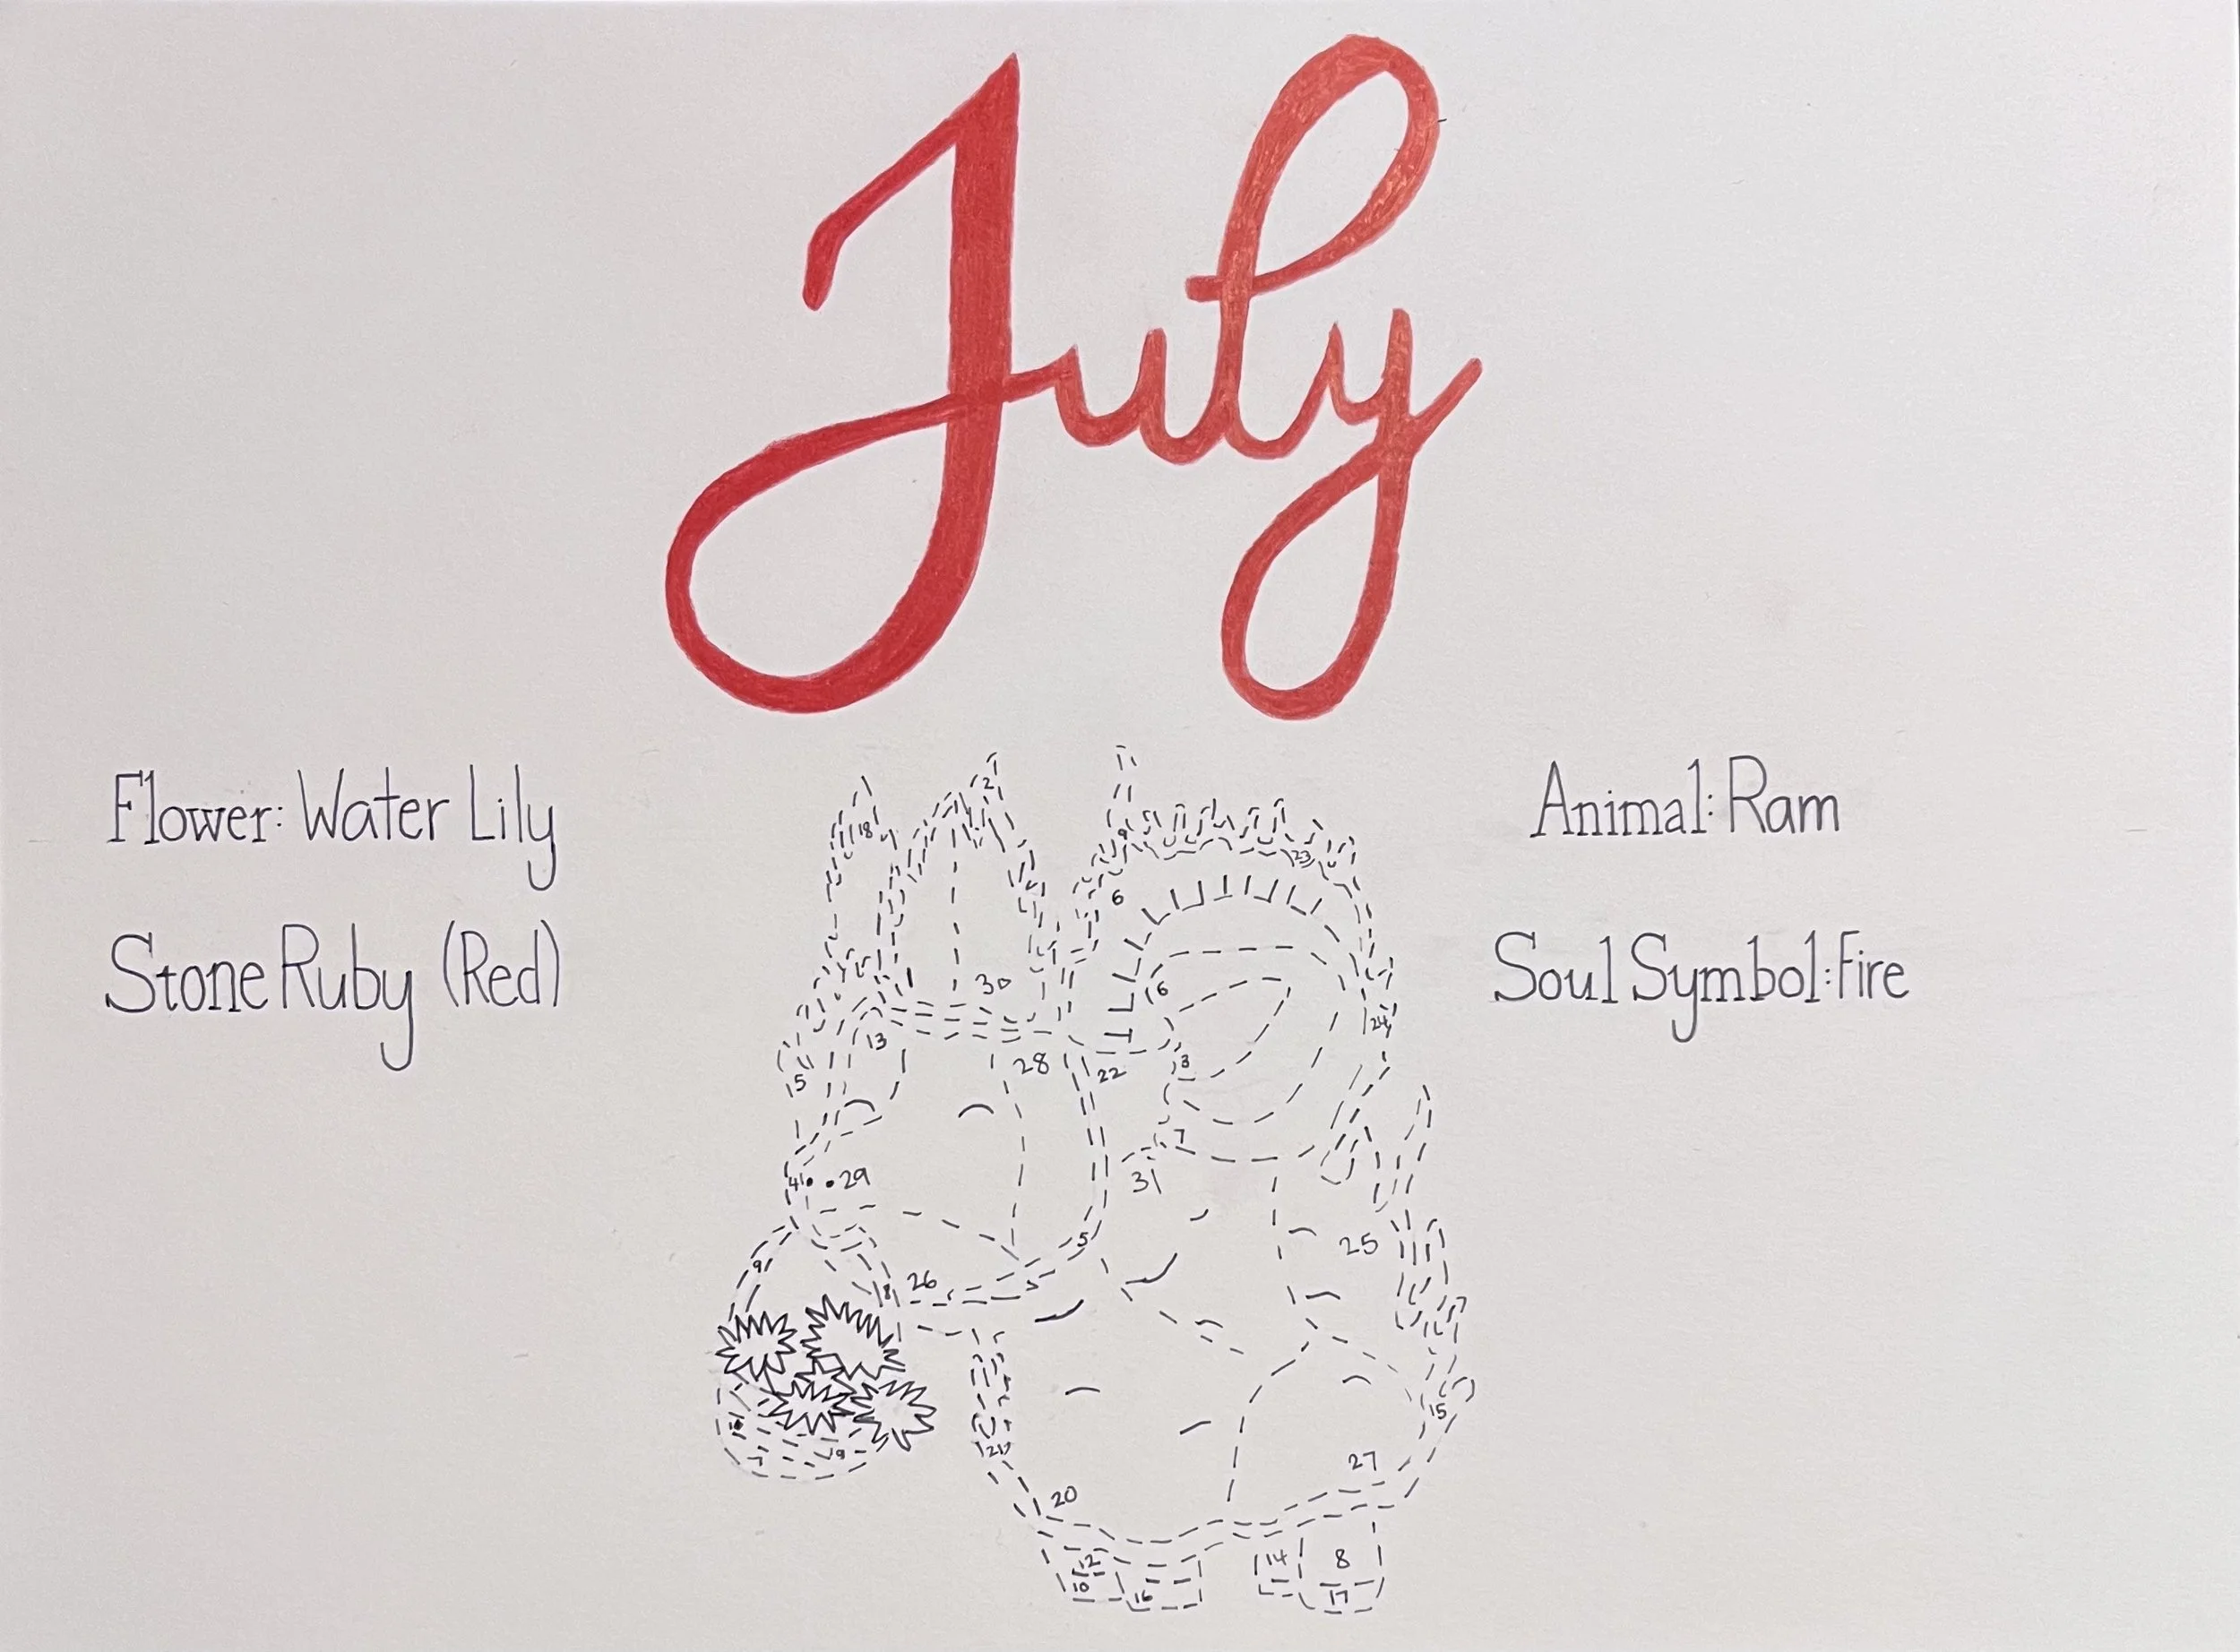 July
Flower: Water Lily
Animal: Ram
Stone Ruby (Red)
Soul Symbol: Fire
2
18
23
6
30
16
24
13
28
22
3
15
7
31
4
29
5
25
9
26
15
9
21
27
20
12
14
8
10
16
17